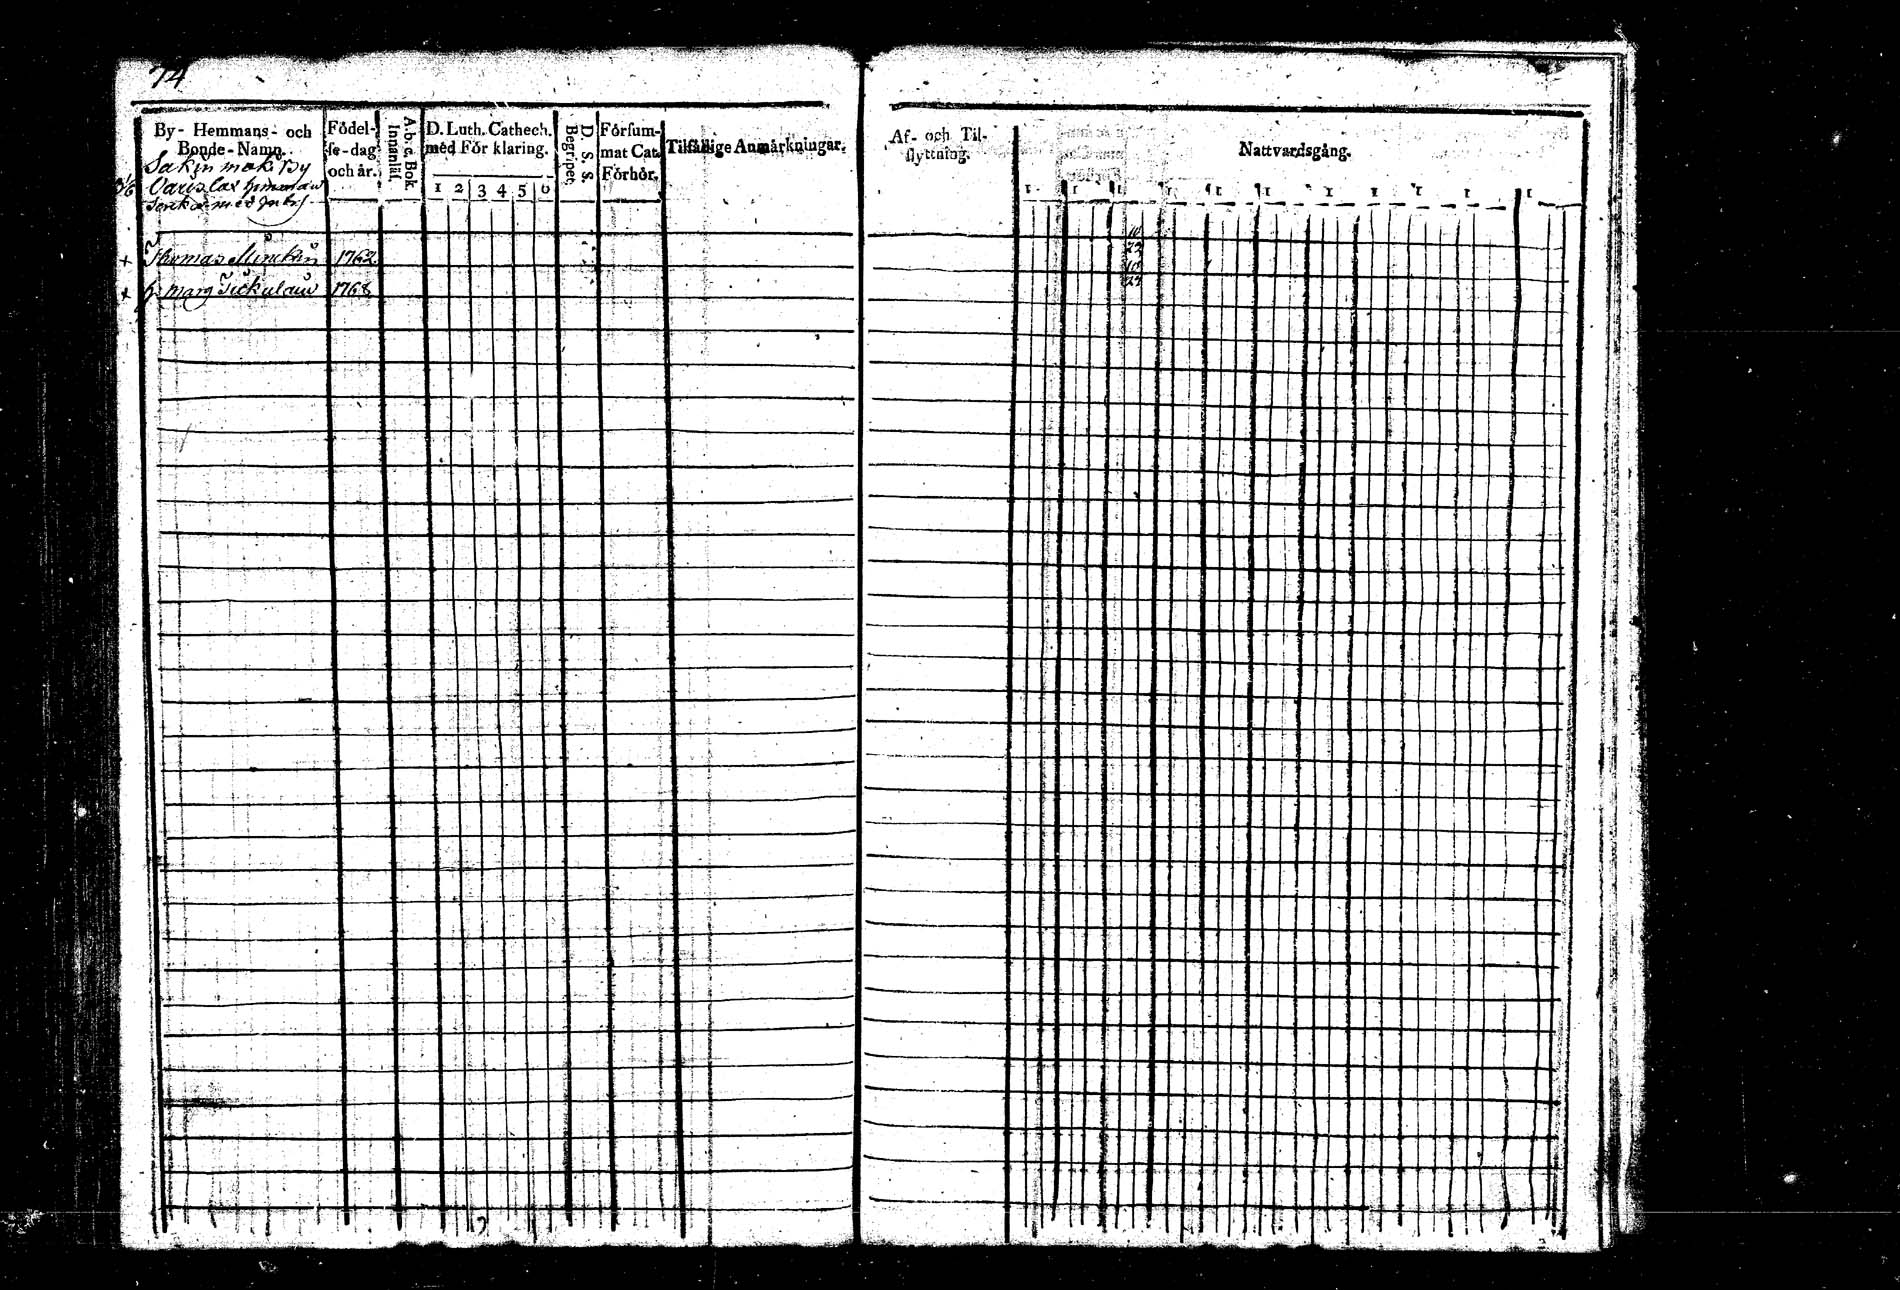 74
By- Hemmans- och
Bonde-Namn.
Födel-
se-dag
och år.
A.b.c. Bok
Innanläs.
D. Luth. Cathech.
med För klaring.
1 2 3 4 5 6
D. S. S.
Begripet.
Försum-
mat Cat.
Förhör.
Tilfällige Anmärkningar.
Sakinmäki By
Thomas
1762
h. Marg
1768
Af- och Til-
flyttning.
Nattvardsgång.
1 1 1 1 1 1 1 1 1 1 1
10
10